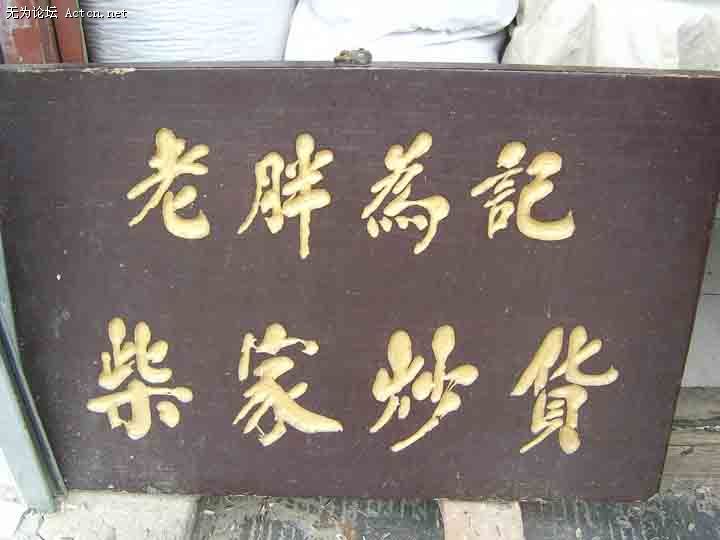 无为论坛 Actcn.net
老胖為記
柴家炒貨